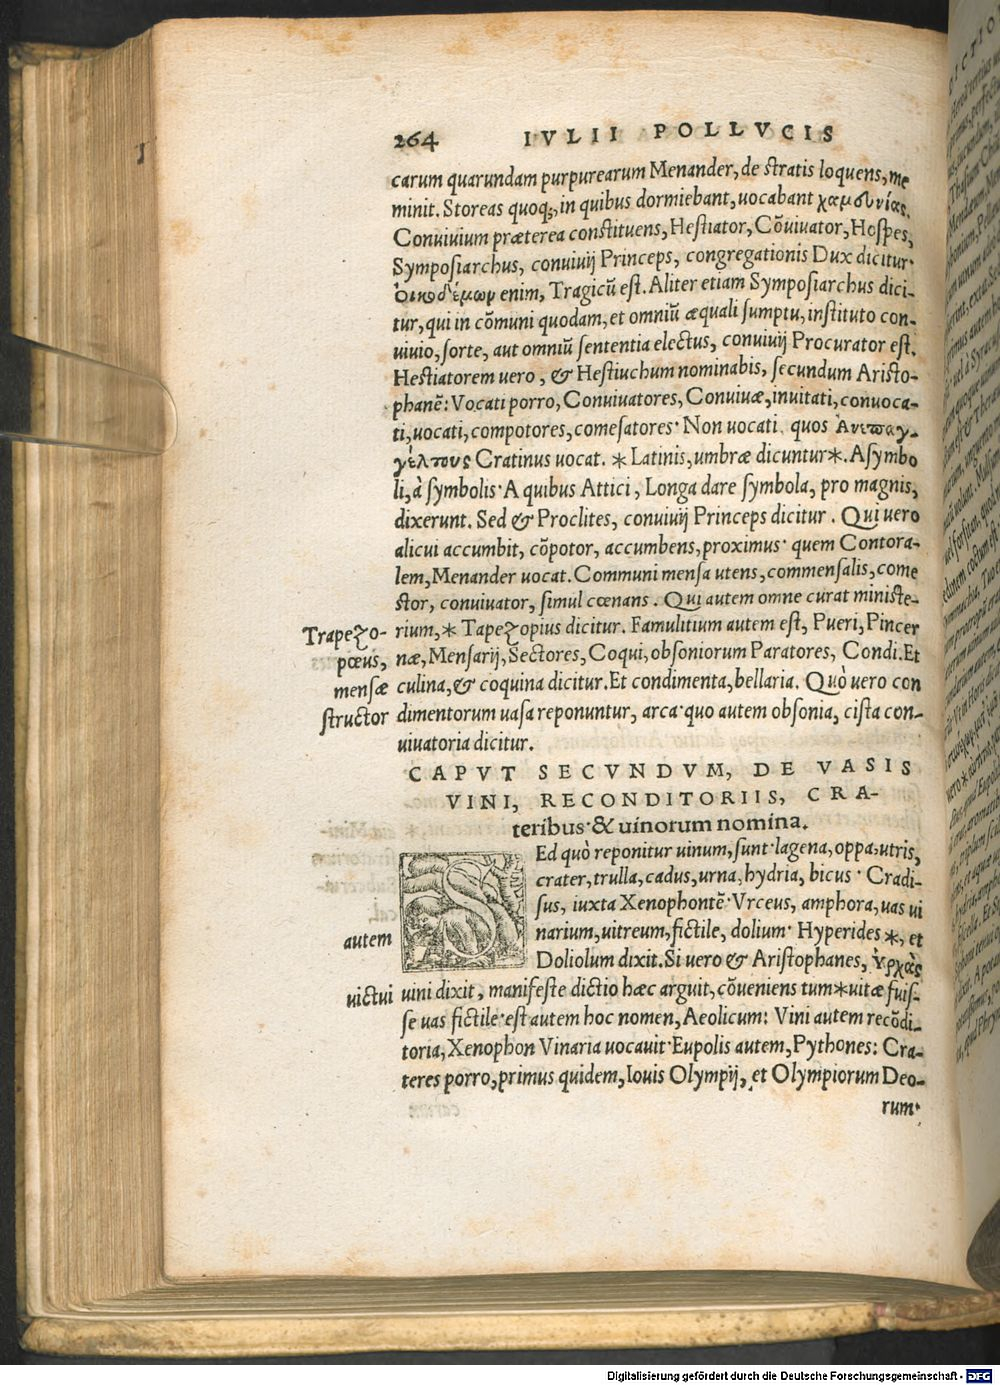 264 IVLII POLLVCIS
carum quarundam purpurearum Menander, de stratis loquens, me
minit. Storeas quoq;, in quibus dormiebant, uocabant χαμευνίας.
Conuiuium præterea constituens, Hestiator, Cõuiuator, Hospes,
Symposiarchus, conuiuij Princeps, congregationis Dux dicitur.
enim, Tragicũ est. Aliter etiam Symposiarchus dici-
tur, qui in cõmuni quodam, et omniũ æquali sumptu, instituto con-
uiuio, sorte, aut omniũ sententia electus, conuiuij Procurator est.
Hestiatorem uero, & Hestiuchum nominabis, secundum Aristo-
phanẽ: Vocati porro, Conuiuatores, Conuiuæ, inuitati, conuoca-
ti, uocati, compotores, comesatores. Non uocati, quos Ἀνεπαγ-
γέλτους Cratinus uocat. * Latinis, umbræ dicuntur*. Asymbo
li, à symbolis. A quibus Attici, Longa dare symbola, pro magnis,
dixerunt. Sed & Proclites, conuiuij Princeps dicitur. Qui uero
alicui accumbit, cõpotor, accumbens, proximus. quem Contora-
lem, Menander uocat. Communi mensa utens, commensalis, come
stor, conuiuator, simul cœnans. Qui autem omne curat ministe-
rium, * Tapezopius dicitur. Famulitium autem est, Pueri, Pincer
Trapezo-
pœus,
mensæ
structor
næ, Mensarij, Sectores, Coqui, obsoniorum Paratores, Condi. Et
culina, & coquina dicitur. Et condimenta, bellaria. Quò uero con
dimentorum uasa reponuntur, arca. quo autem obsonia, cista con-
uiuatoria dicitur.
CAPVT SECVNDVM, DE VASIS
VINI, RECONDITORIIS, CRA-
teribus. & uinorum nomina.
SEd quò reponitur uinum, sunt lagena, oppa, utris,
crater, trulla, cadus, urna, hydria, bicus. Cradi-
sus, iuxta Xenophontẽ. Vrceus, amphora, uas ui
narium, uitreum, fictile, dolium. Hyperides *, et
autem
Doliolum dixit. Si uero & Aristophanes, ὑρχὰς
uini dixit, manifeste dictio hæc arguit, cõueniens tum * uitæ fuis-
uictui
se uas fictile. est autem hoc nomen, Aeolicum: Vini autem recõdi-
toria, Xenophon Vinaria uocauit. Eupolis autem, Pythones: Cra-
teres porro, primus quidem, Iouis Olympij, et Olympiorum Deo-
rum.
Digitalisierung gefördert durch die Deutsche Forschungsgemeinschaft - DFG